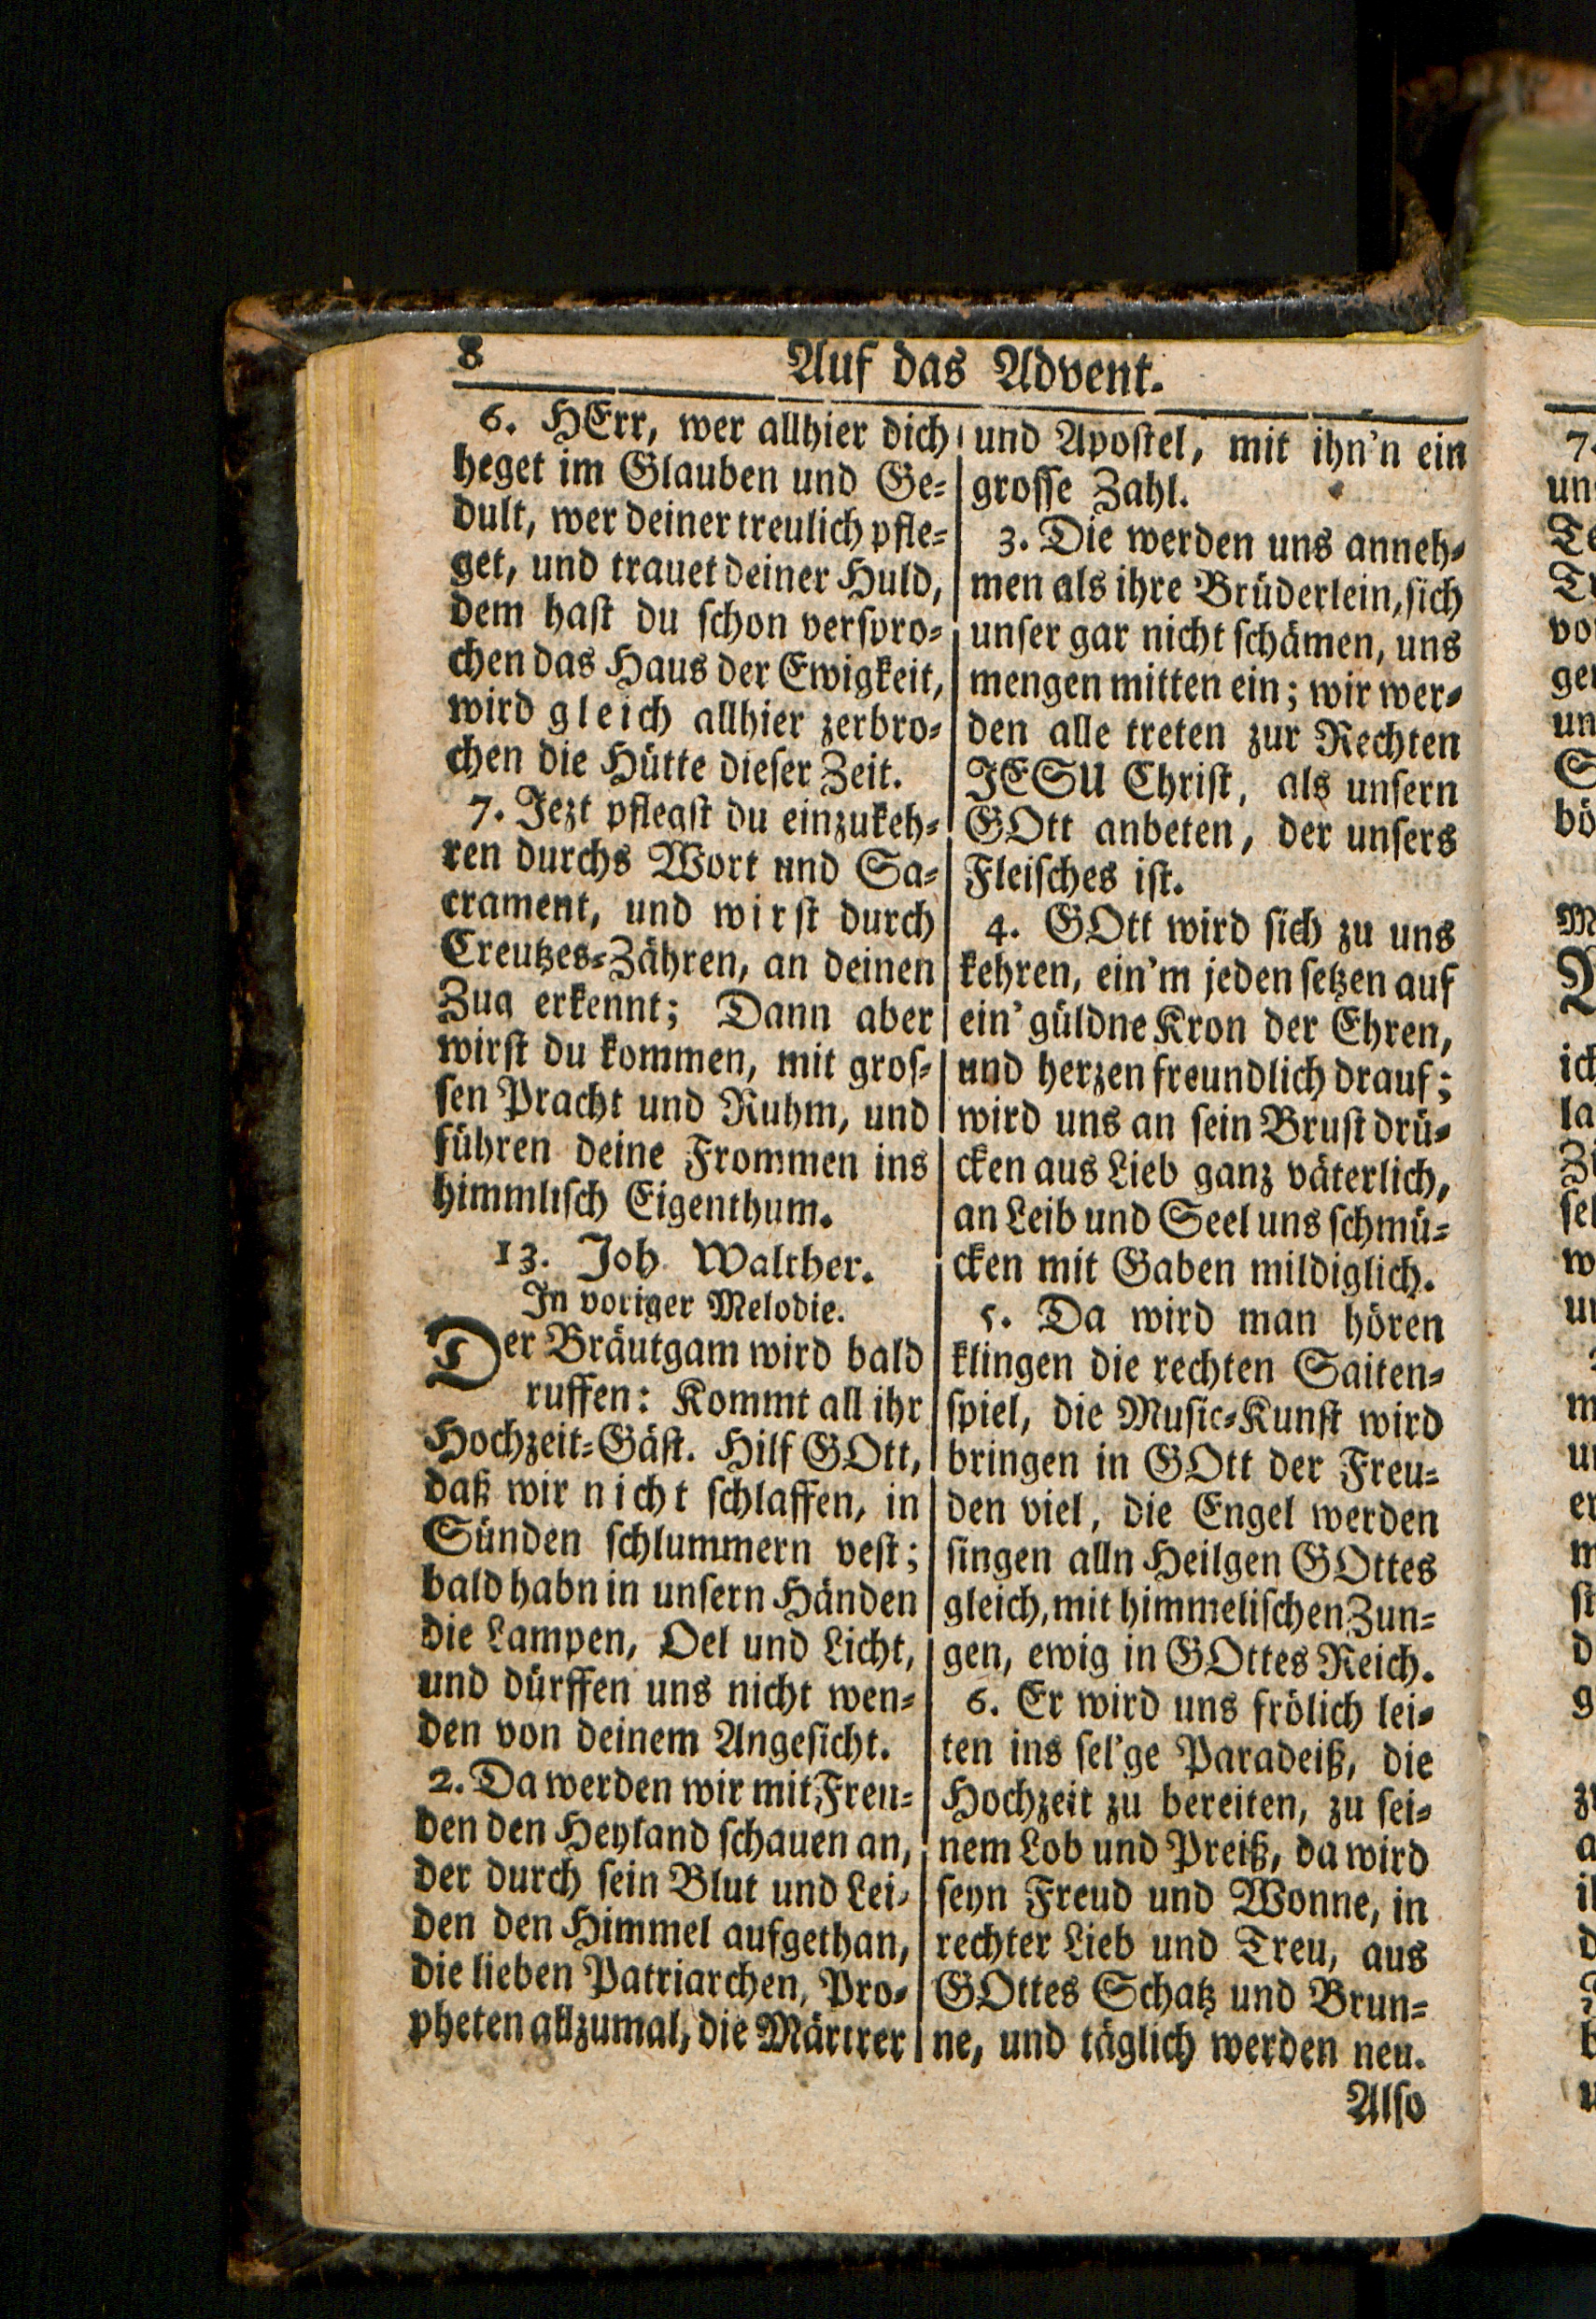 8 Auf das Advent.
6. HErr, wer allhier dich
heget im Glauben und Ge-
dult, wer deiner treulich pfle-
get, und trauet deiner Huld,
dem hast du schon verspro-
chen das Haus der Ewigkeit,
wird gleich allhier zerbro-
chen die Hütte dieser Zeit.
7. Jezt pflegst du einzukeh-
ren durchs Wort und Sa-
crament, und wirst durch
Creutzes-Zähren, an deinen
Zug erkennt; Dann aber
wirst du kommen, mit gros-
sen Pracht und Ruhm, und
führen deine Frommen ins
himmlisch Eigenthum.
13. Joh. Walther.
In voriger Melodie.
Der Bräutgam wird bald
ruffen: Kommt all ihr
Hochzeit-Gäst. Hilf GOtt,
daß wir nicht schlaffen, in
Sünden schlummern vest;
bald habn in unsern Händen
die Lampen, Oel und Licht,
und dürffen uns nicht wen-
den von deinem Angesicht.
2. Da werden wir mit Freu-
den den Heyland schauen an,
der durch sein Blut und Lei-
den den Himmel aufgethan,
die lieben Patriarchen, Pro-
pheten allzumal, die Märtrer
und Apostel, mit ihn'n ein
grosse Zahl.
3. Die werden uns anneh-
men als ihre Brüderlein, sich
unser gar nicht schämen, uns
mengen mitten ein; wir wer-
den alle treten zur Rechten
JESU Christ, als unsern
GOtt anbeten, der unsers
Fleisches ist.
4. GOtt wird sich zu uns
kehren, ein'm jeden setzen auf
ein' güldne Kron der Ehren,
und herzen freundlich drauf;
wird uns an sein Brust drü-
cken aus Lieb ganz väterlich,
an Leib und Seel uns schmü-
cken mit Gaben mildiglich.
5. Da wird man hören
klingen die rechten Saiten-
spiel, die Music-Kunst wird
bringen in GOtt der Freu-
den viel, die Engel werden
singen alln Heilgen GOttes
gleich, mit himmelischen Zun-
gen, ewig in GOttes Reich.
6. Er wird uns frölich lei-
ten ins sel'ge Paradeiß, die
Hochzeit zu bereiten, zu sei-
nem Lob und Preiß, da wird
seyn Freud und Wonne, in
rechter Lieb und Treu, aus
GOttes Schatz und Brun-
ne, und täglich werden neu.
Also